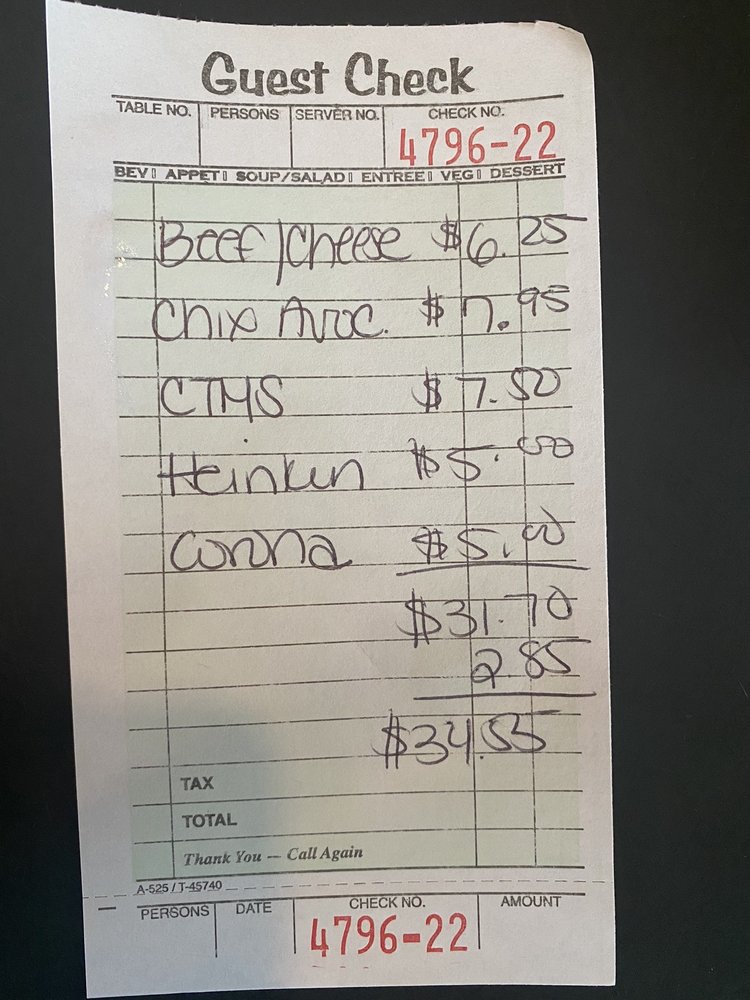 Guest Check
TABLE NO. PERSONS SERVER NO. CHECK NO.
4796-22
BEV APPET SOUP/SALAD ENTREE VEG DESSERT
Beef/Cheese $6.25
Chix Avoc. $7.95
CTMS $7.50
Heinken $5.00
Corona $5.00
$31.70
2.85
$34.55
TAX
TOTAL
Thank You — Call Again
A-525 / T-45740
PERSONS DATE CHECK NO. AMOUNT
4796-22